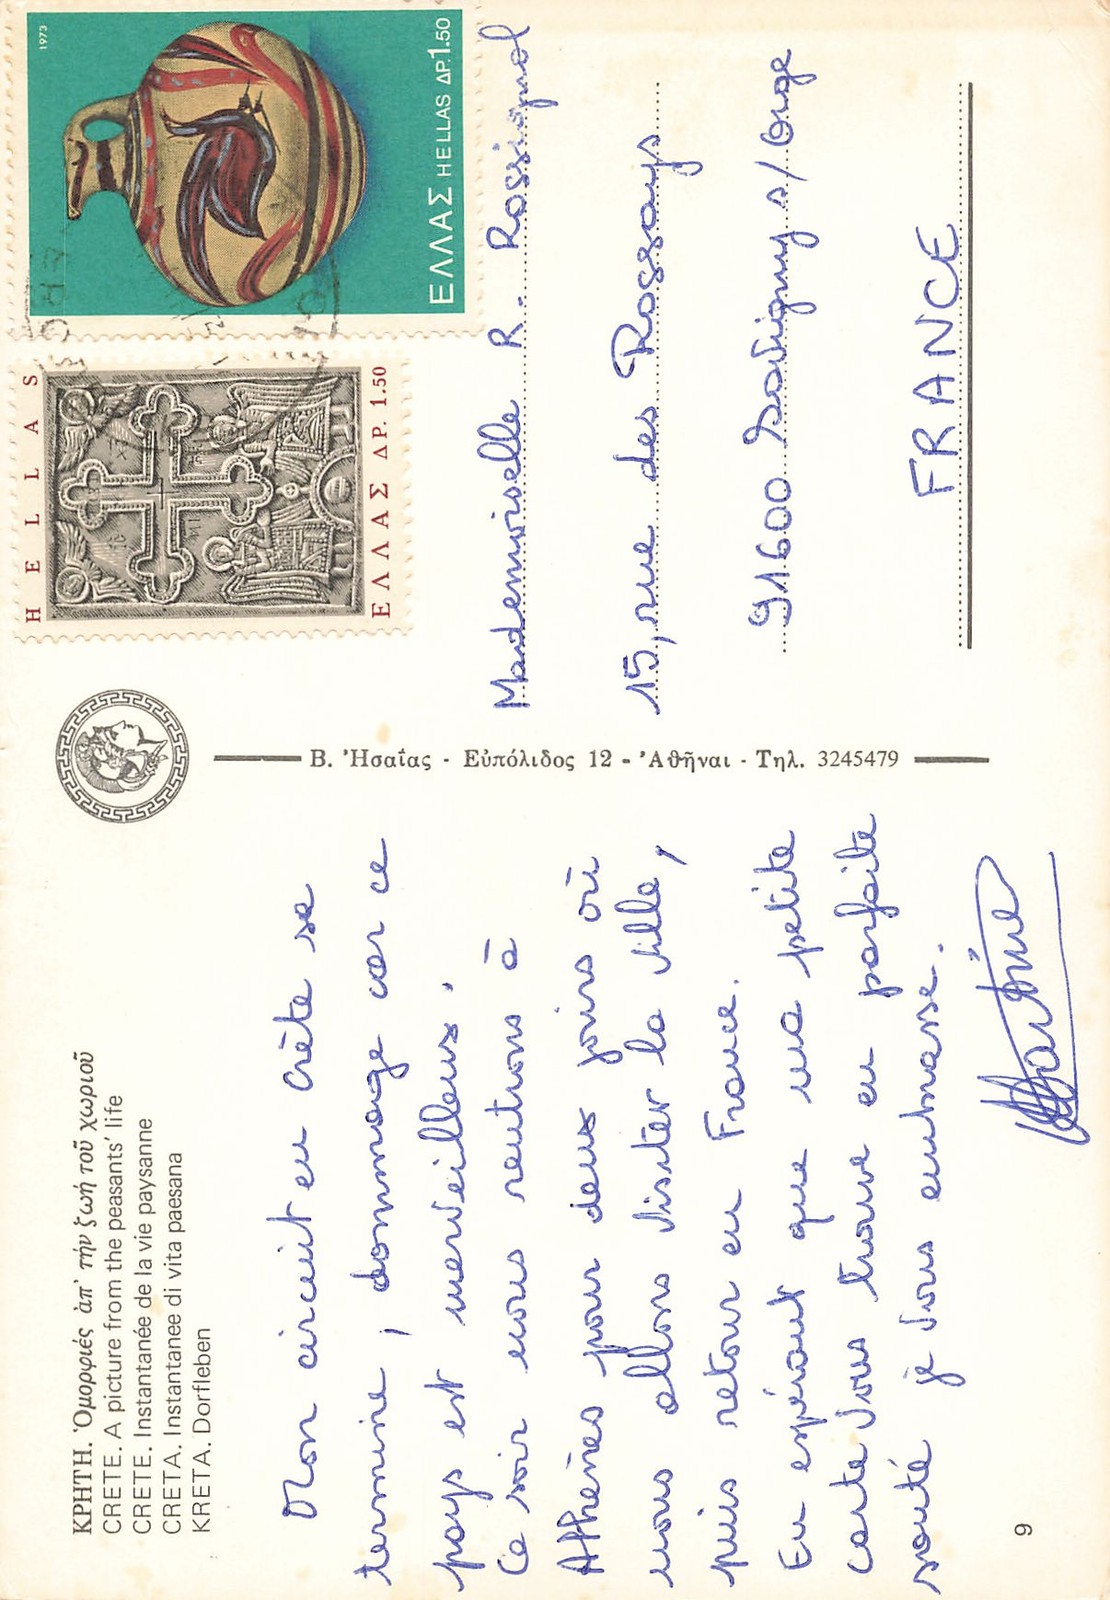 ΚΡΗΤΗ. Ὀμορφιές ἀπ' τήν ζωή τοῦ χωριοῦ
CRETE. A picture from the peasants' life
CRETE. Instantanée de la vie paysanne
CRETA. Instantanee di vita paesana
KRETA. Dorfleben
Mon circuit en Crète se
termine, dommage car ce
pays est merveilleux.
Ce soir nous rentrons à
Athènes pour deux jours où
nous allons visiter la ville,
puis retour en France.
En espérant que ma petite
carte vous trouve en parfaite
santé je vous embrasse.
Martine
9
Β. Ἠσαΐας - Εὐπόλιδος 12 - Ἀθῆναι - Τηλ. 3245479
HELLAS
ΕΛΛΑΣ ΔΡ. 1.50
1973
ΕΛΛΑΣ HELLAS ΔΡ.1.50
Mademoiselle R. Rossignol
15, rue des Rossays
91600 Savigny s/Orge
FRANCE